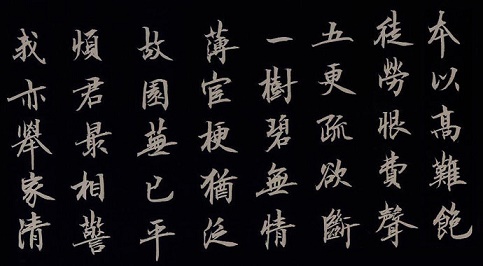 本以高難飽
徒勞恨費聲
五更疏欲斷
一樹碧無情
薄宦梗猶泛
故園蕪已平
煩君最相警
我亦舉家清